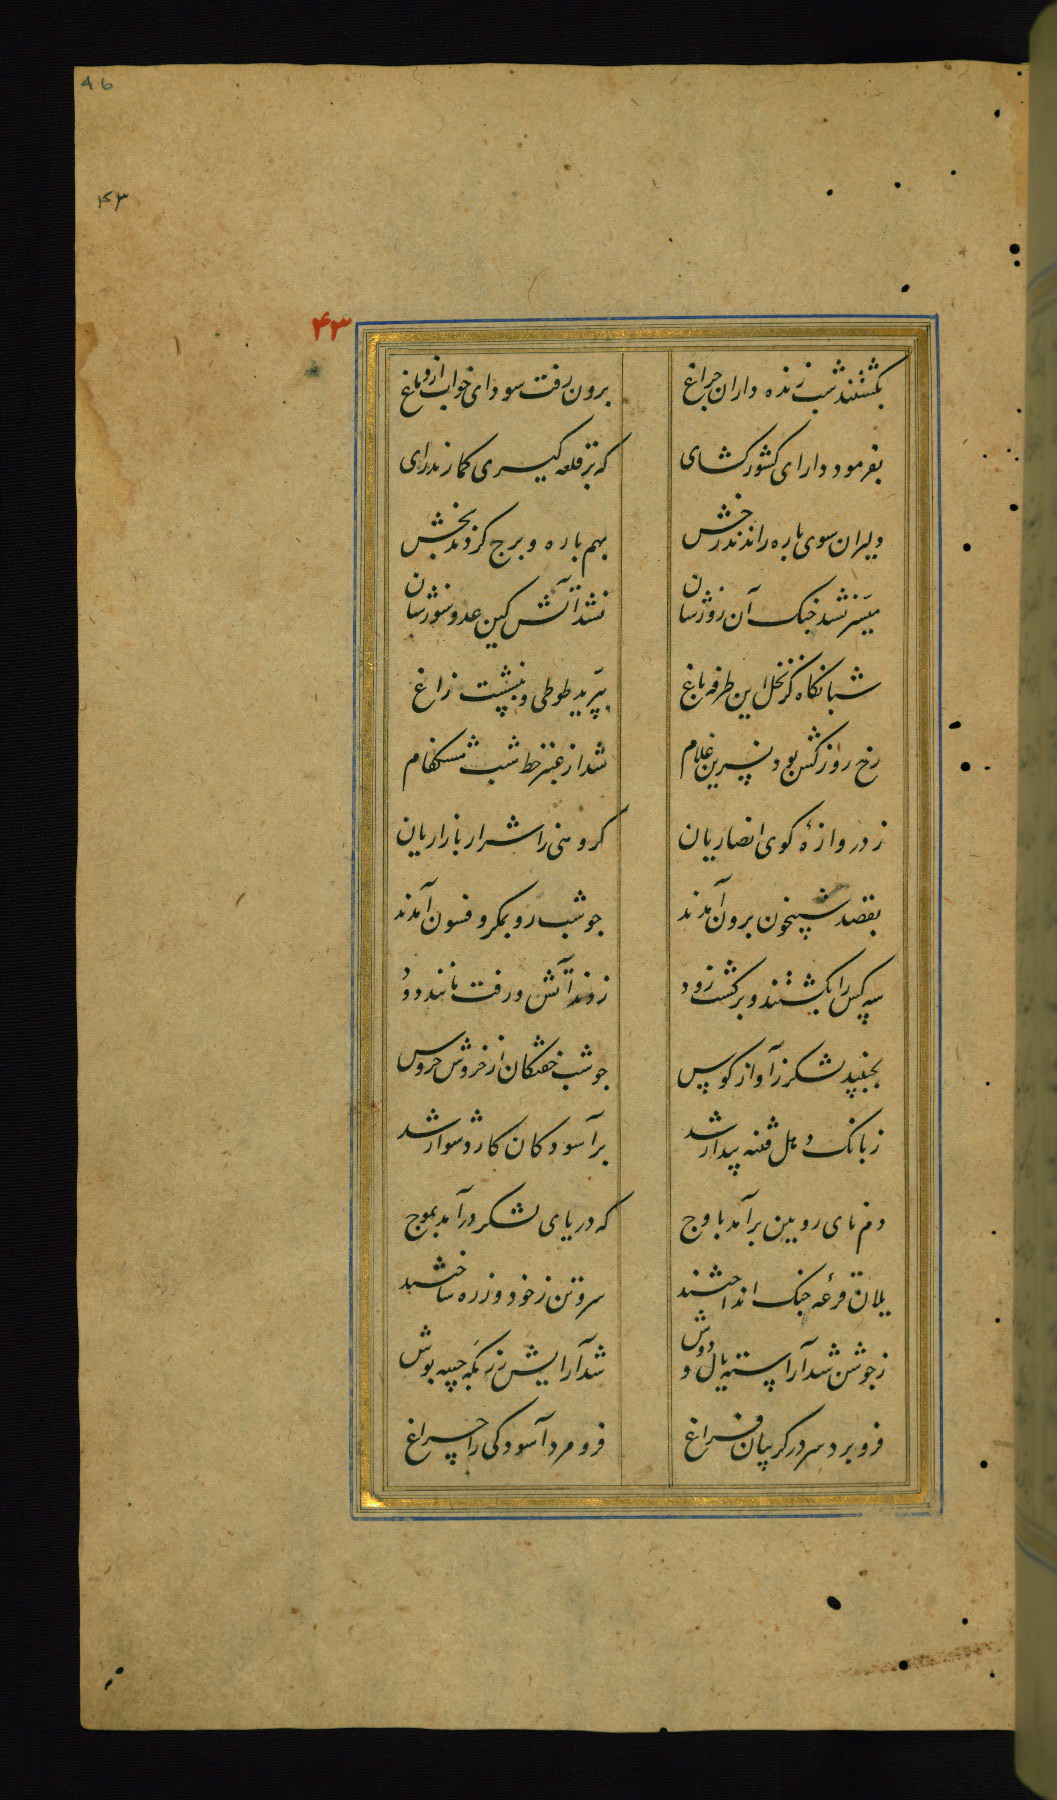 46
۴۳
۴۳
بکشتند شب زنده داران چراغ برون رفت سودای خواب از دماغ
بفرمود دارای کشورکشای که بر قلعه کیری کمارند رای
دلیران سوی باره راندند رخش بهم باره و برج کردند بخش
میسّر نشد جنک آن روز سان نشد آتش کین عدو سوز سان
شبانکاه کز نخل این طرفه باغ بپرّید طوطی و بنشست زاغ
رخ روز کش بود نسرین غلام شد از عنبر خط شب مشکفام
ز دروازهٔ کوی انصاریان کروهی را شرار بازاریان
بقصد شبیخون برون آمدند چو شب رو بمکر و فسون آمدند
سه کس را بکشتند و برکشت زود زدند آتش و رفت مانند دود
بجنبید لشکر ز آواز کوس چو شب خفتکان از خروش خروس
ز بانک دهل فتنه بیدار شد بر آسودکان کار دشوار شد
دم نای رویین برآمد باوج که دریای لشکر درآمد بموج
یلان قرعهٔ جنک انداختند سر و تن ز خود و زره ساختند
ز جوشن شد آراسته یال و دوش شد آرایش زر نکه جیبه پوش
فرو برد سر در کریبان فراغ فرو مرد آسودکی را چراغ